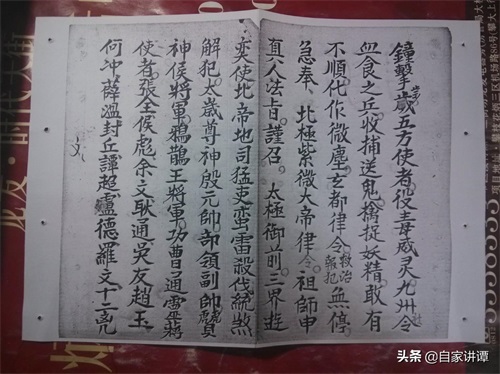 鐘擊歲五方使者役毒威灵九州令
血食之兵收捕送鬼擒捉妖精敢有
不順化作微塵玄都律令救治解犯無停
急奉北極紫微大帝律令祖師申
真人法旨謹召太極御前三界遊
奕使北帝地司猛吏蛮雷殺伐統煞
解犯太歲尊神殷元帥部領副帥
神侯將軍鴉鵲王將軍功曹通靈蔣
使者張全侯彪余文耿通吳友趙玉
何冲薛溫封丘譚超盧德羅文十二
头条 @自家讲谭